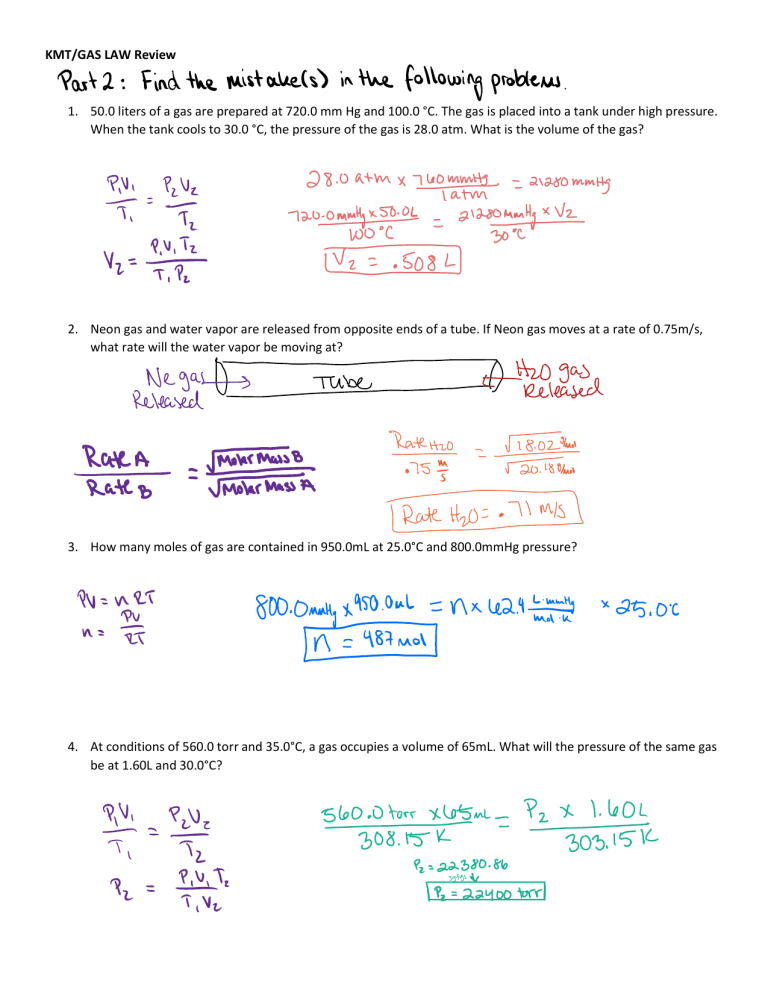 KMT/GAS LAW Review
Part 2: Find the mistake(s) in the following problems.
1. 50.0 liters of a gas are prepared at 720.0 mm Hg and 100.0 °C. The gas is placed into a tank under high pressure.
When the tank cools to 30.0 °C, the pressure of the gas is 28.0 atm. What is the volume of the gas?
P₁V₁/T₁ = P₂V₂/T₂
V₂ = P₁V₁T₂/T₁P₂
28.0 atm x 760mmHg/1atm = 21280 mmHg
720.0mmHg x 50.0L/100°C = 21280mmHg x V₂/30°C
V₂ = .508 L
2. Neon gas and water vapor are released from opposite ends of a tube. If Neon gas moves at a rate of 0.75m/s,
what rate will the water vapor be moving at?
Ne gas
Released
Tube
H2O gas
Released
Rate A/Rate B = √Molar Mass B/√Molar Mass A
Rate H₂O/.75 m/s = √18.02 g/mol/√20.18 g/mol
Rate H₂O = .71 m/s
3. How many moles of gas are contained in 950.0mL at 25.0°C and 800.0mmHg pressure?
PV = nRT
n = PV/RT
800.0mmHg x 950.0mL = n x 62.4 L·mmHg/mol·K x 25.0°C
n = 487 mol
4. At conditions of 560.0 torr and 35.0°C, a gas occupies a volume of 65mL. What will the pressure of the same gas
be at 1.60L and 30.0°C?
P₁V₁/T₁ = P₂V₂/T₂
P₂ = P₁V₁T₂/T₁V₂
560.0 torr x 65mL/308.15 K = P₂ x 1.60L/303.15 K
P₂ = 22380.86
P₂ = 22400 torr